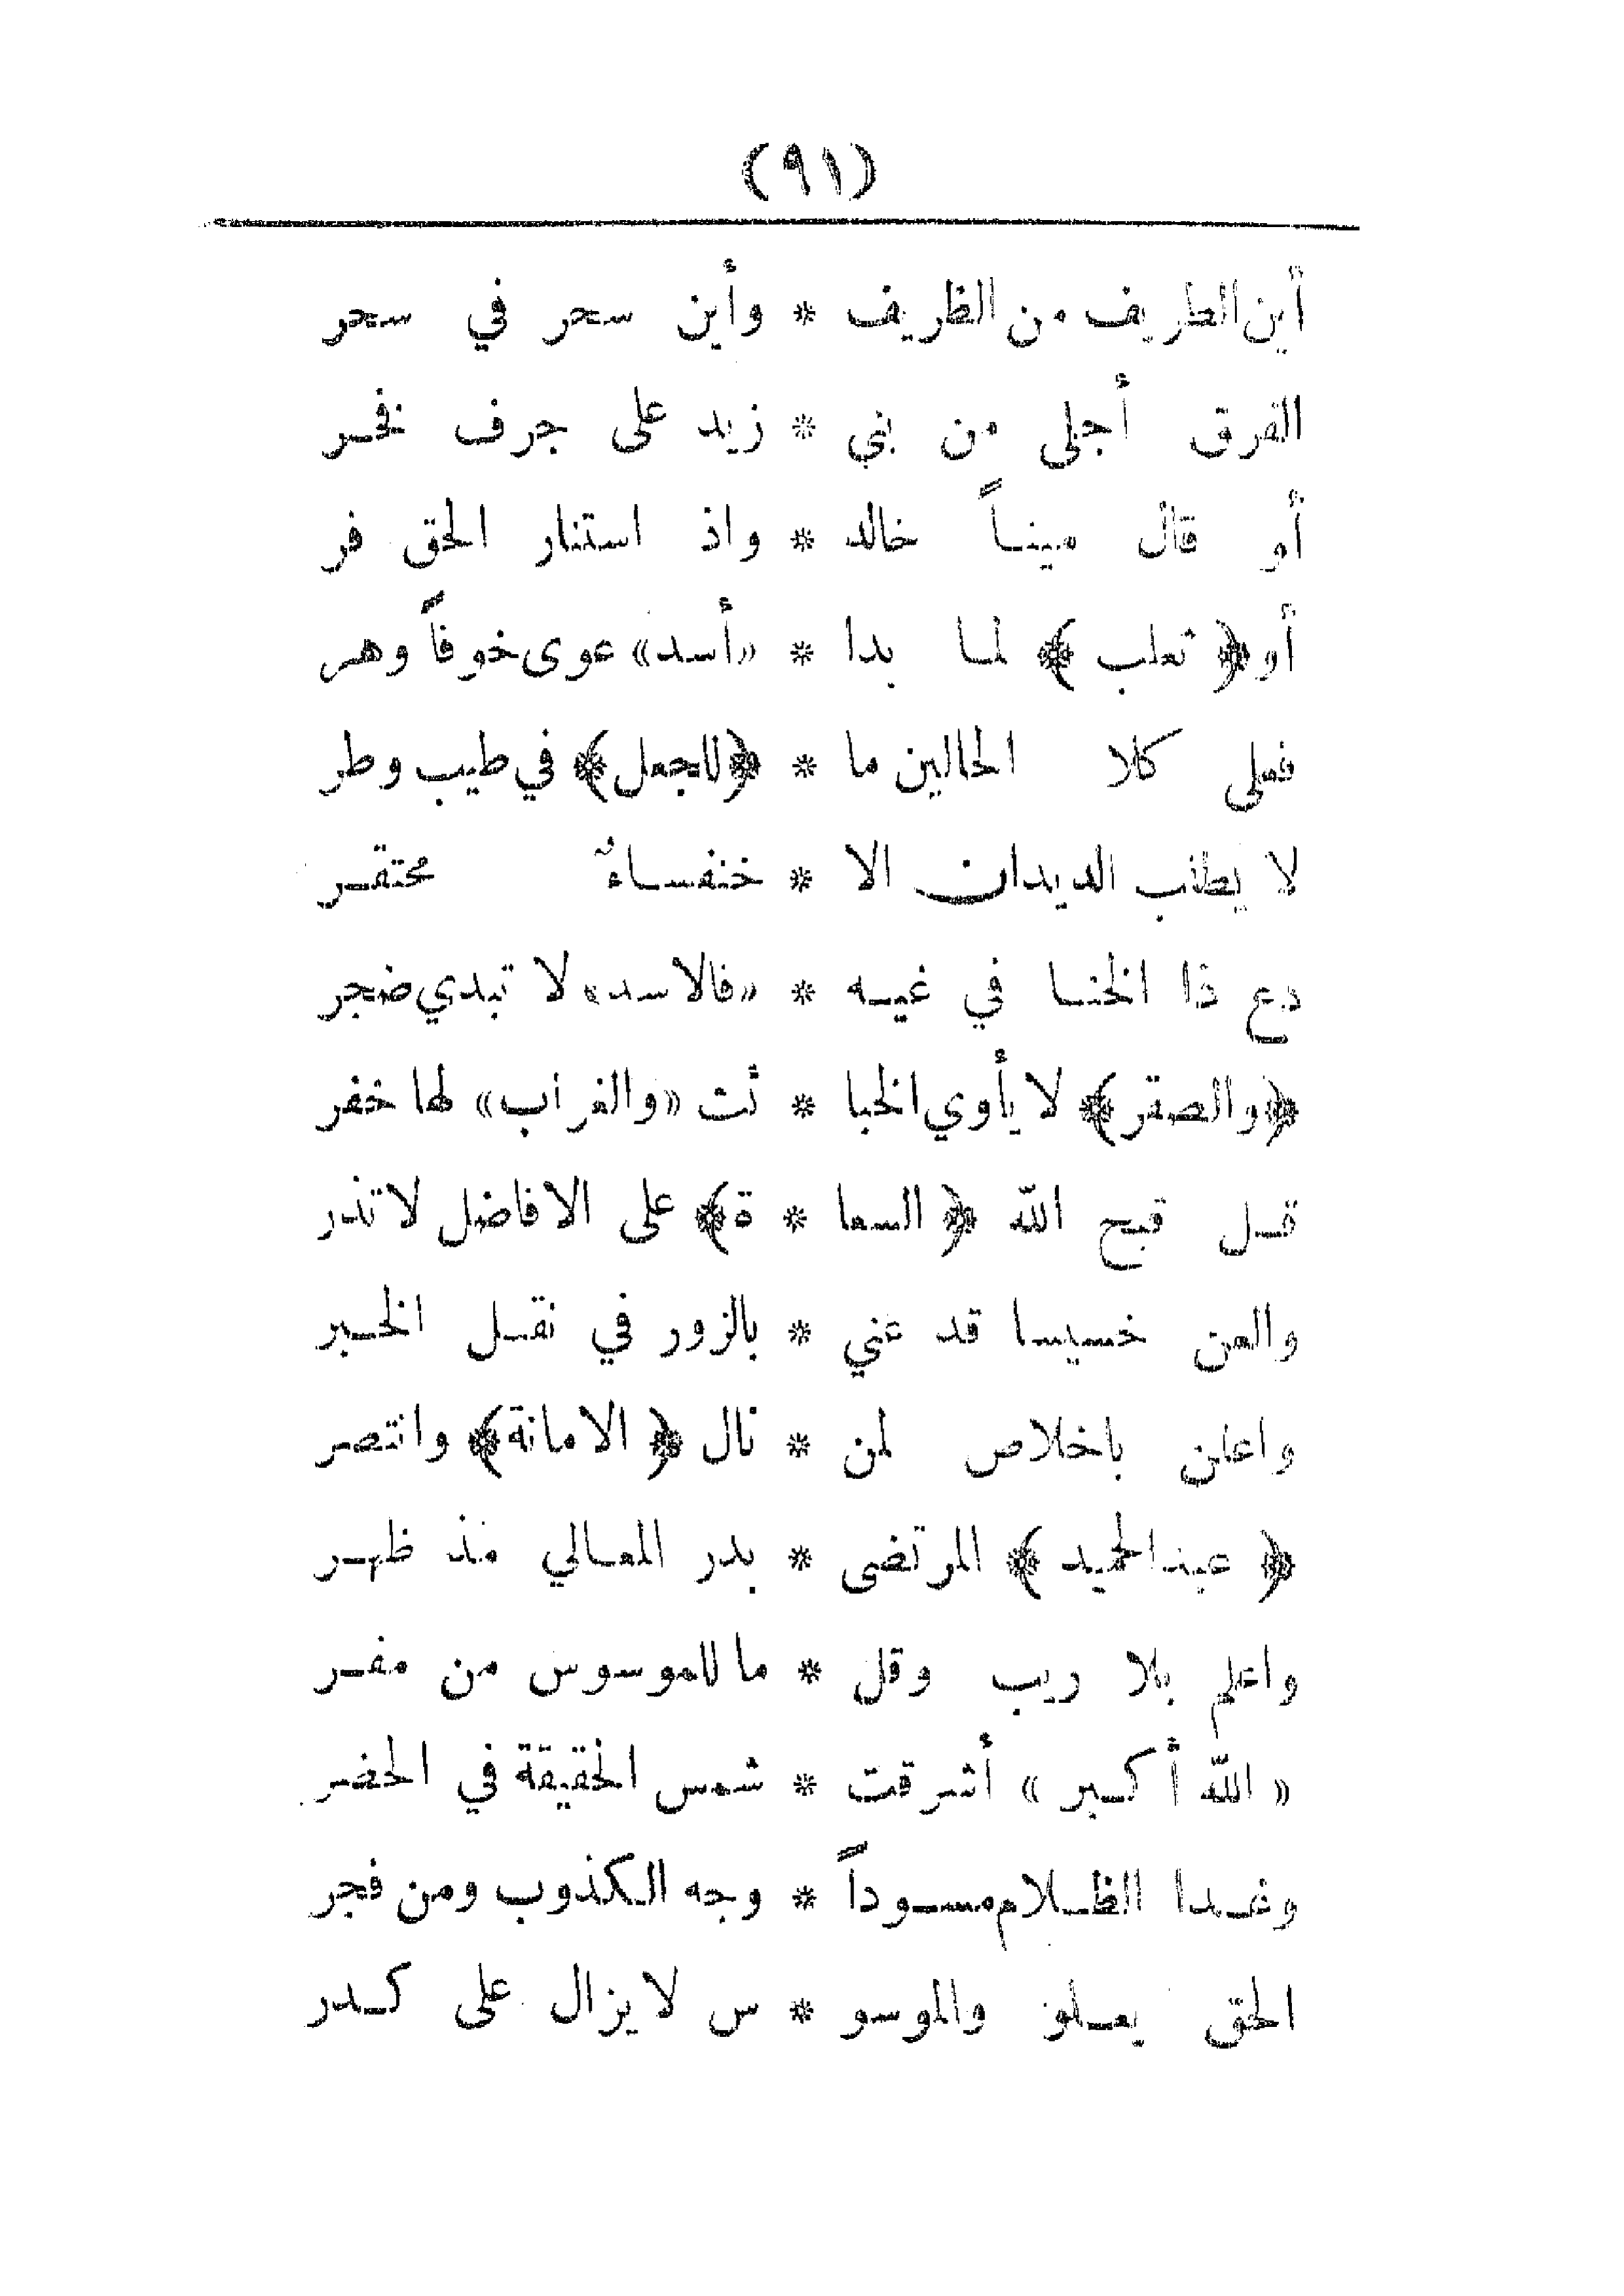 (٩١)
أين الطريف من الظريف * وأين سحر في سحر
الفرق أجلى من بني * زيد على جرف فخر
أو قال ميناً خالد * واذ استنار الحق فر
أو ﴿ ثعلب ﴾ لما بدا * «أسد» عوى خوفاً وهر
فعلى كلا الحالين ما * ﴿للجعل﴾ في طيب وطر
لا يطلب الديدان الا * خنفساءٌ محتقر
دع ذا الخنا في غيه * «فالاسد» لا تبدي ضجر
﴿والصقر﴾ لا يأوي الخبا * ئث «والغراب» لها خفر
قل قبح الله ﴿ السعا * ة﴾ على الافاضل لا تذر
والعن خسيسا قد عني * بالزور في نقل الخبر
واعلن باخلاص لمن * نال ﴿ الامانة﴾ وانتصر
﴿ عبد الحميد ﴾ المرتضى * بدر المعالي مذ ظهر
واعلم بلا ريب وقل * ما للموسوس من مفر
« الله أكبر » أشرقت * شمس الحقيقة في الحضر
وغدا الظلام مسوداً * وجه الكذوب ومن فجر
الحق يعلو والموسو * س لا يزال على كدر